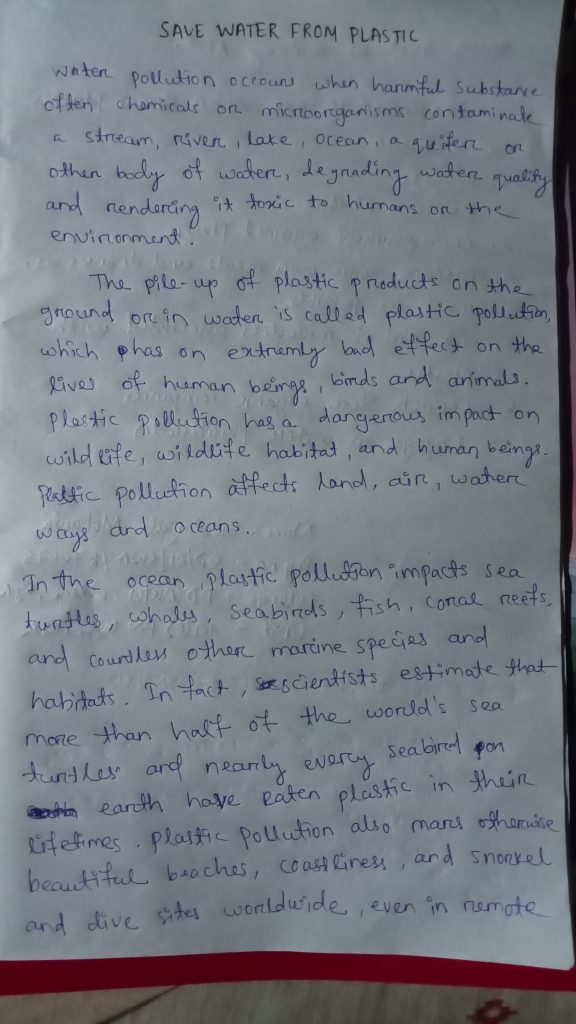 SAVE WATER FROM PLASTIC
Water pollution occours when harmful substance
often chemicals or microorganisms contaminate
a stream, river, lake, ocean, a quifer or
other body of water, degrading water quality
and rendering it toxic to humans or the
environment.
The pile-up of plastic products on the
ground or in water is called plastic pollution,
which has on extremly bad effect on the
lives of human beings, birds and animals.
Plastic pollution has a dangerous impact on
wild life, wildlife habitat, and human beings.
Plastic pollution affects land, air, water
ways and oceans.
In the ocean, plastic pollution impacts sea
turtles, whales, seabirds, fish, corral reefs,
and countless other marine species and
habitats. In fact, scientists estimate that
more than half of the world's sea
turtles and nearly every seabird on
earth have eaten plastic in their
lifetimes. Plastic pollution also mars otherwise
beautiful beaches, coastliness, and snorkel
and dive sites worldwide, even in remote